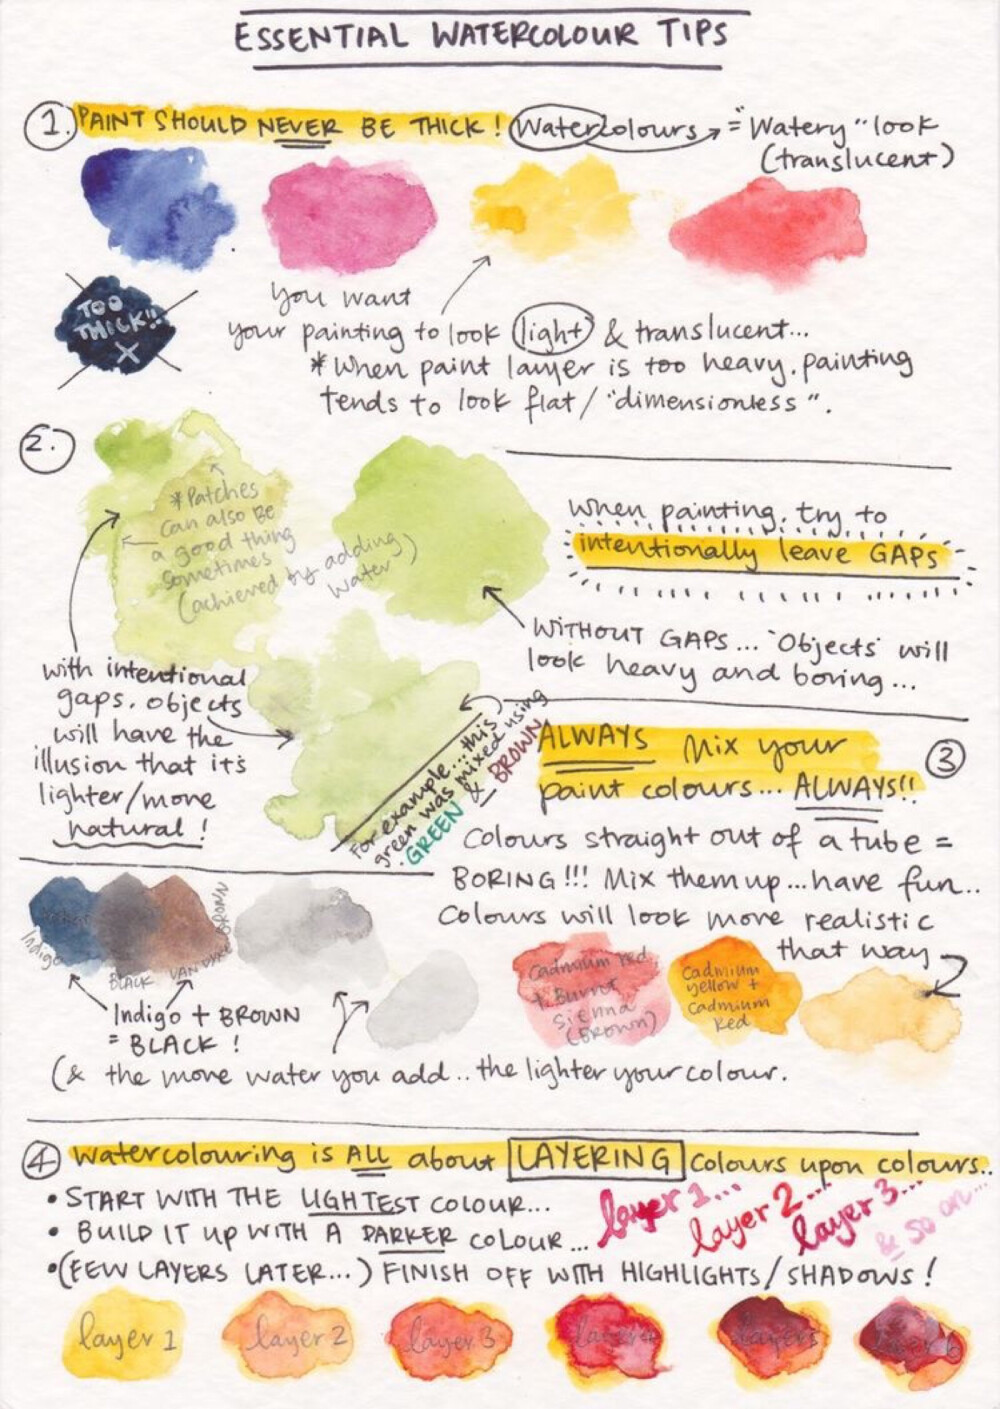 ESSENTIAL WATERCOLOUR TIPS
1. PAINT SHOULD NEVER BE THICK! Watercolours → = "Watery" look
(translucent)
TOO
THICK!!
X
You want
your painting to look light & translucent...
* When paint layer is too heavy, painting
tends to look flat / "dimensionless".
2.
* Patches
can also be
a good thing
sometimes
(achieved by adding
water)
When painting, try to
intentionally leave GAPS
WITHOUT GAPS... 'Objects' will
look heavy and boring...
with intentional
gaps, objects
will have the
illusion that it's
lighter/more
natural!
For example... this
green was mixed using
GREEN & BROWN
3
ALWAYS Mix your
paint colours... ALWAYS!!
Colours straight out of a tube =
BORING!!! Mix them up...have fun..
Colours will look more realistic
that way
Indigo
BLACK
VAN DYKE BROWN
Indigo + BROWN
= BLACK!
Cadmium red
+ Burnt
Sienna
(BROWN)
Cadmium
yellow +
Cadmium
Red
(& the more water you add.. the lighter your colour.
4 Watercolouring is ALL about LAYERING Colours upon colours..
• START WITH THE LIGHTEST COLOUR...
• BUILD IT UP WITH A DARKER COLOUR...
• (FEW LAYERS LATER...) FINISH OFF WITH HIGHLIGHTS/SHADOWS!
layer 1... layer 2... layer 3... & so on...
layer 1
layer 2
layer 3
layer 4
layer 5
layer 6